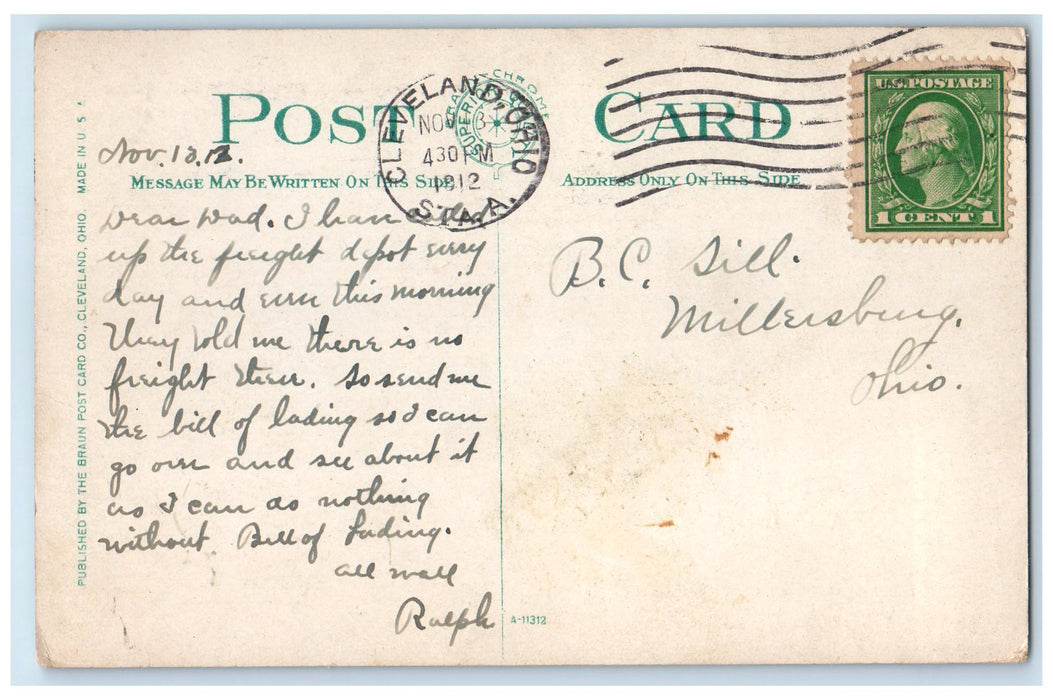 POST CARD
MESSAGE MAY BE WRITTEN ON THIS SIDE
ADDRESS ONLY ON THIS SIDE
CLEVELAND, OHIO
NOV 13
430 PM
1912
STA. A.
U.S. POSTAGE
1 CENT 1
Nov. 13, 12.
Dear Dad. I have
up the freight depot every
day and even this morning
They told me there is no
freight there. So send me
the bill of lading so I can
go over and see about it
as I can do nothing
without Bill of Lading.
all well
Ralph
B.C. Sill.
Millersburg,
Ohio.
PUBLISHED BY THE BRAUN POST CARD CO., CLEVELAND, OHIO. MADE IN U S A
A-11312